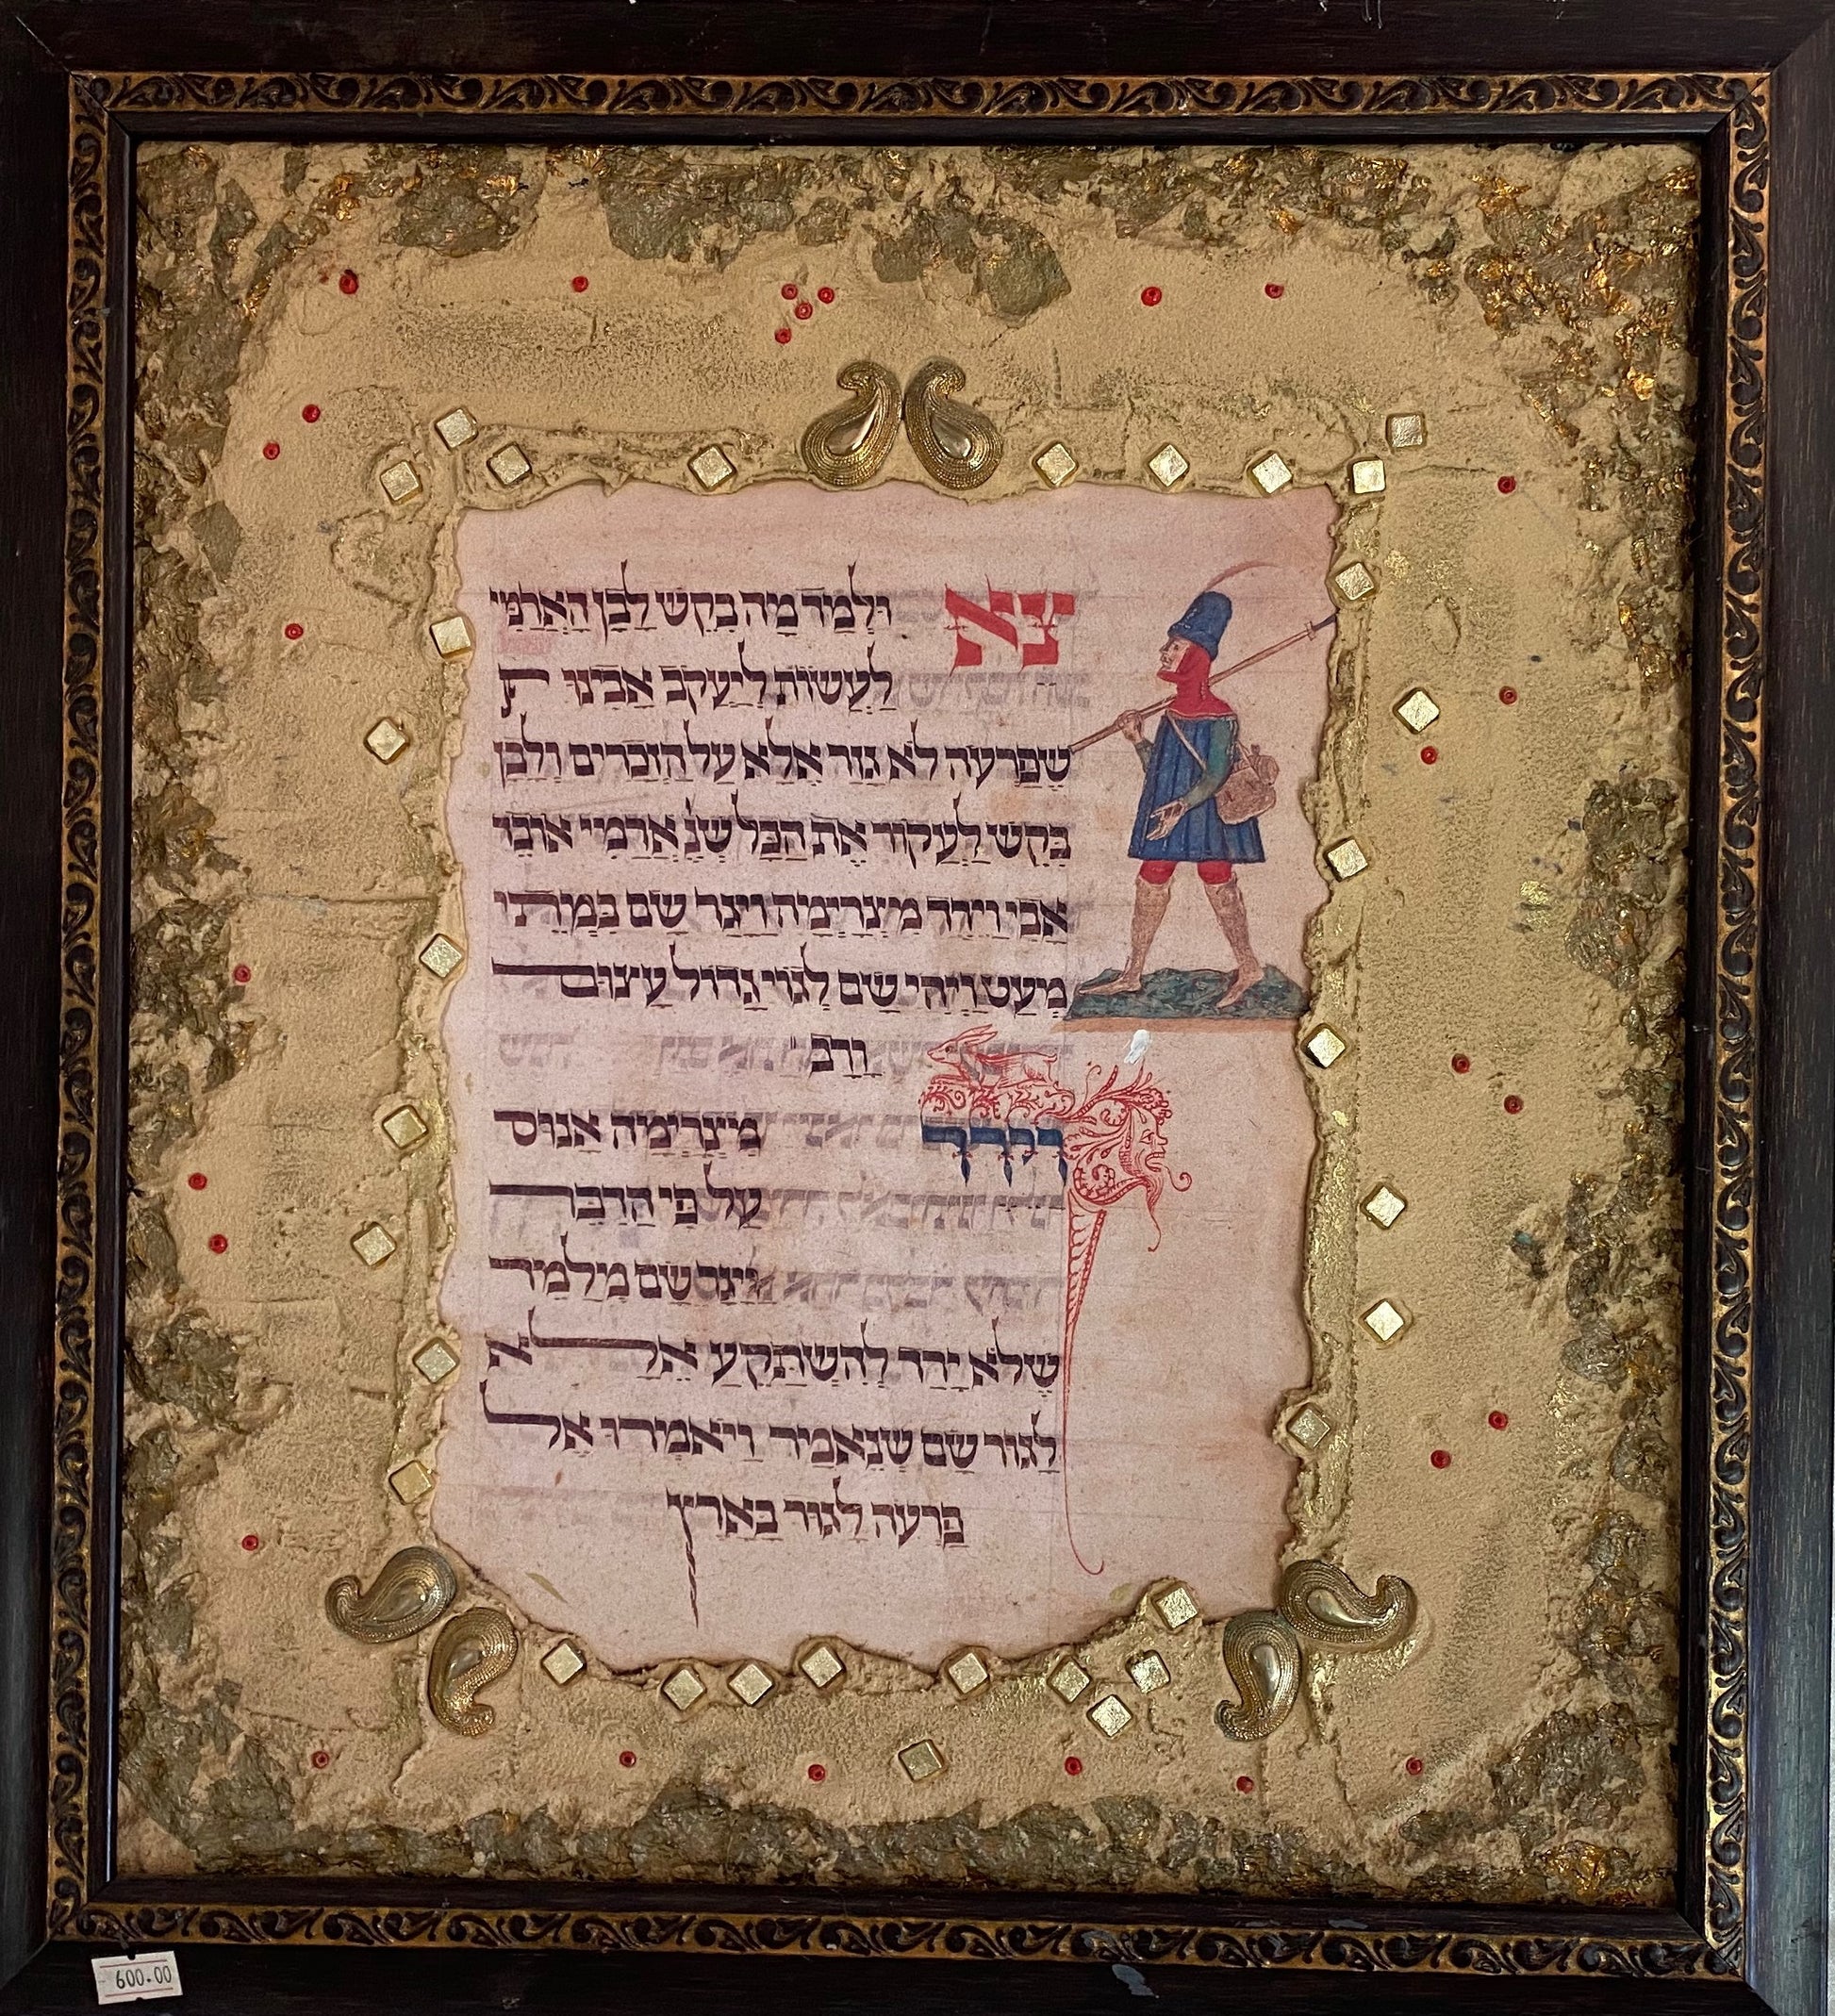 צא ולמד מה בקש לבן הארמי
לעשות ליעקב אבינו
שפרעה לא גזר אלא על הזכרים ולבן
בקש לעקור את הכל שנ' ארמי אובד
אבי וירד מצרימה ויגר שם במתי
מעט ויהי שם לגוי גדול עצום
ורב
וירד מצרימה אנוס
על פי הדבר
ויגר שם מלמד
שלא ירד להשתקע אלא
לגור שם שנאמר ויאמרו אל
פרעה לגור בארץ
600.00